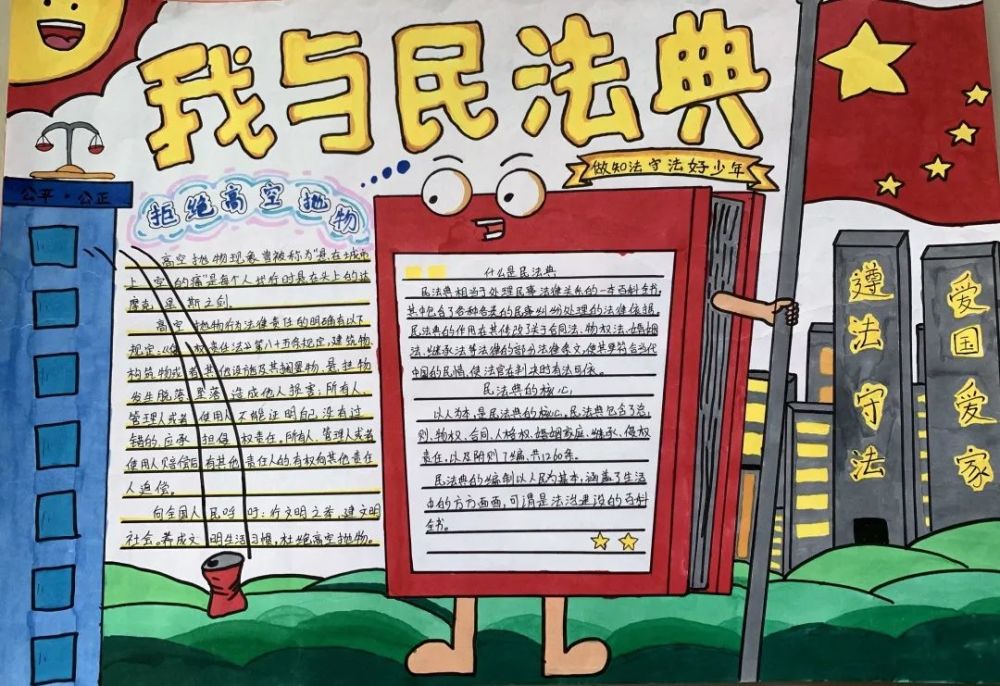 我与民法典
做知法守法好少年
公平·公正
拒绝高空抛物
高空抛物现象曾被称为“悬在城市
上空的痛”是每个人
摩克里斯之剑
高空抛物行为法律责任的明确有以下
规定:《侵权责任法》第八十五条规定,建筑物、
构筑物或者其他设施及其搁置物、悬挂物
发生脱落、坠落造成他人损害,所有人、
管理人或者使用人不能证明自己没有过
错的,应承担侵权责任,所有人、管理人或者
使用人赔偿后,有其他责任人的,有权向其他责任
人追偿。
向全国人民呼吁:行文明之举,建文明
社会,养成文明生活习惯,杜绝高空抛物。
什么是民法典
民法典相当于处理民事法律关系的一本百科全书,
其中包含了各种各类的民事纠纷处理的法律依据,
民法典的作用在其修改了关于合同法、物权法、婚姻
法、继承法等法律的部分法律条文,使其更符合当代
中国的民情,使法官在判决时有法可依。
民法典的核心
以人为本,是民法典的核心,民法典包含了总
则、物权、合同、人格权、婚姻家庭、继承、侵权
责任,以及附则7编,共1260条。
民法典的编制以人民为基本,涵盖了生活
中的方方面面,可谓是法治建设的百科
全书。
遵法守法
爱国爱家